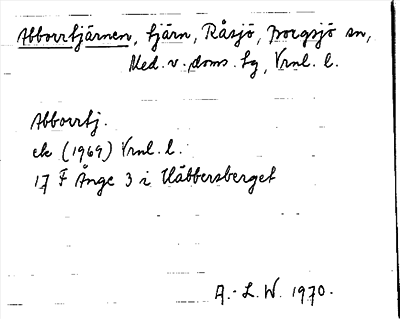 Abborrtjärnen, tjärn, Råsjö, Borgsjö sn,
Med. v. doms. tg, Vrnl. l.
Abborrtj.
ek (1969) Vrnl. l.
17 F Ånge 3 i Kläbbersberget
A.-L.W. 1970.